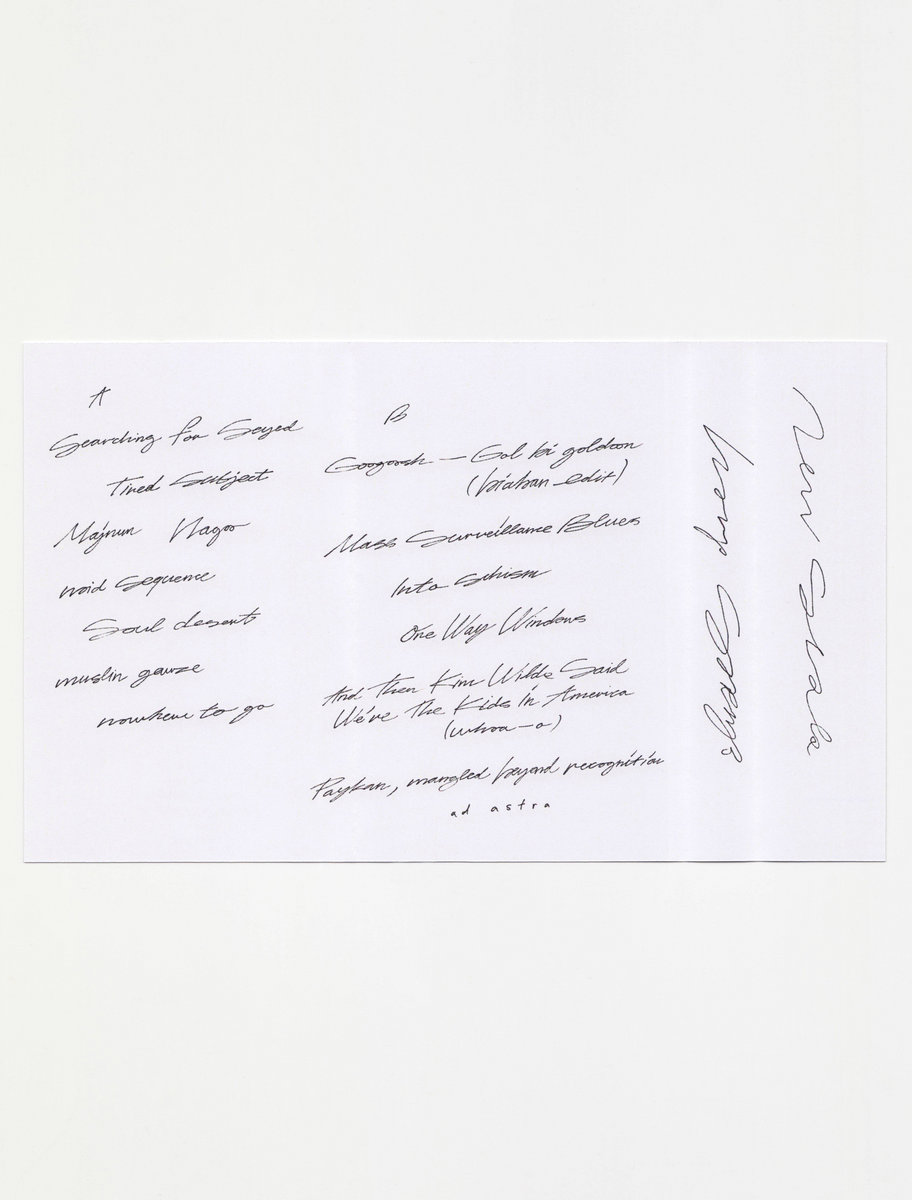 A
Searching for Seyed
Tired Subject
Majnun Nagoo
void sequence
Soul desert
muslin gauze
nowhere to go
B
Googoosh — Gol bi goldoon
(biaban edit)
Mass Surveillance Blues
Into schism
One Way Windows
And Then Kim Wilde Said
We're The Kids In America
(whoa-o)
Paykan, mangled beyond recognition
ad astra